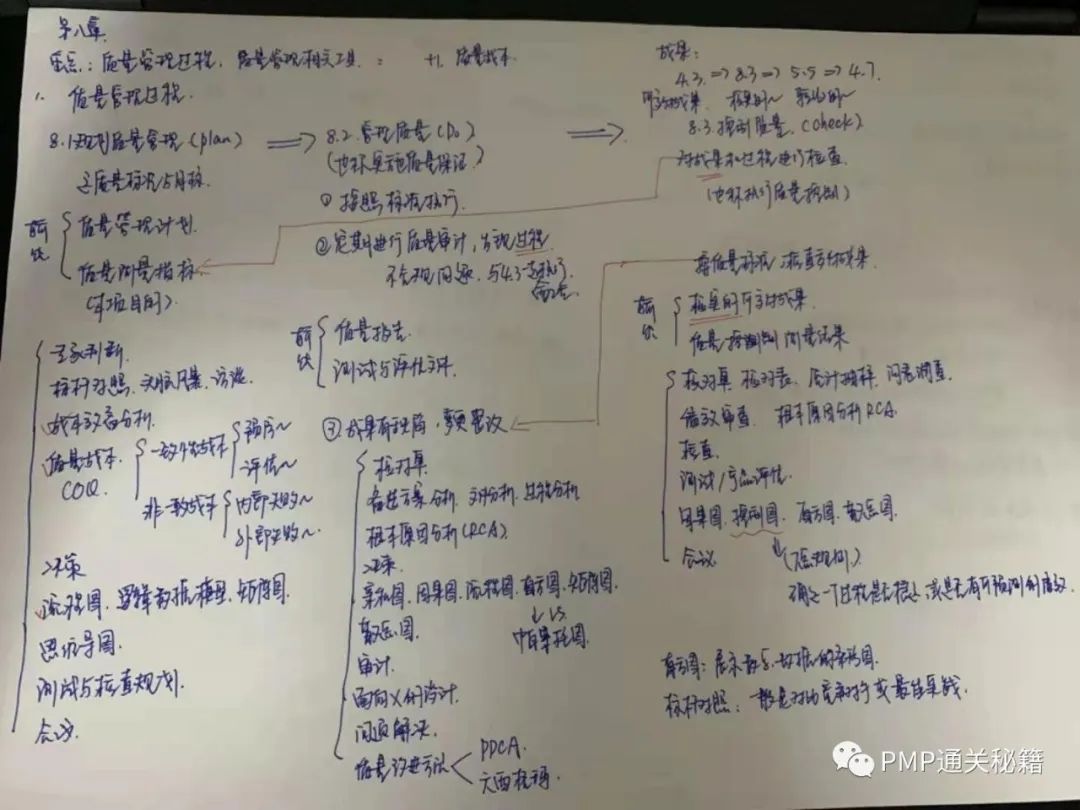 第八章
重点：质量管理过程，质量管理相关工具 ： 十. 质量成本
1. 质量管理过程.
成果：
4.3. => 8.3 => 5.5 => 4.7.
可交付成果 核实的~ 验收的~
8.1规划质量管理 (plan) => 8.2. 管理质量 (Do) =>
(也称实施质量保证)
8.3. 控制质量. (check)
对成果和过程进行检查.
(也称执行质量控制)
定质量标准与目标.
① 按照标准执行.
前线 { 质量管理计划.
质量测量指标
(本项目的)
② 定期进行质量审计，发现过程
不合规问题. 5.4.3
拿质量标准，检查交付成果.
{ 质量报告
测试与评估文件.
{ 核实的可交付成果
质量控制测量结果
专家判断.
标杆对照、头脑风暴、访谈.
成本效益分析.
质量成本 COQ.
一致性成本 { 预防~
评估~
非一致成本 { 内部失败~
外部失败~.
决策
流程图. 逻辑数据模型. 矩阵图.
思维导图.
测试与检查规划.
会议.
③ 成果有理陷，要整改
核对单
备选方案分析. 文件分析. 过程分析
根本原因分析 (RCA).
决策.
亲和图. 因果图. 流程图. 直方图. 矩阵图.
散点图. ↓ VS.
帕累托图.
审计.
面向X的设计.
问题解决.
质量改进方法 < PDCA.
六西格玛.
核对单 核对表、统计抽样、问卷调查.
绩效审查. 根本原因分析RCA.
检查.
测试/产品评估.
因果图. 控制图. 直方图. 散点图.
会议 ↓ (七点规则.)
确定一个过程是否稳定，或是否有可预测的绩效.
直方图：展示数字数据的条形图.
标杆对照：一般是对比竞争对手或最佳实践.
PMP通关秘籍